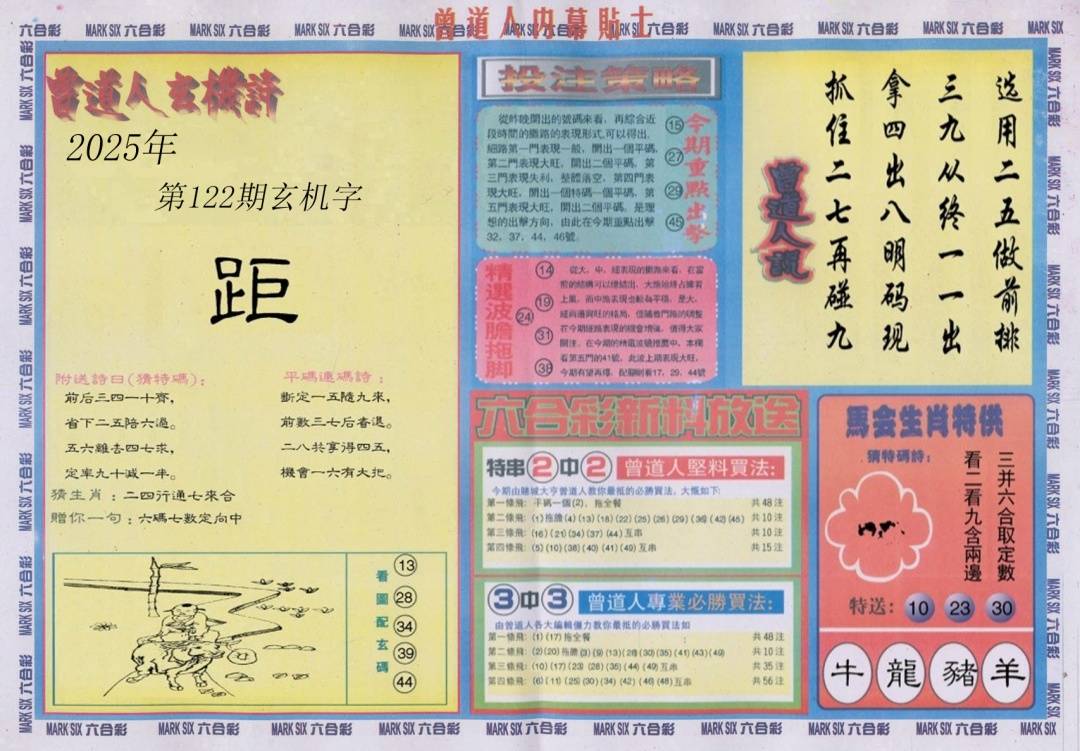 曾道人内幕貼士
MARK SIX 六合彩
曾道人玄機詩
2025年
第122期玄机字
距
附送詩曰(猜特碼):
前后三四一十齊,
省下二五陪六過。
五六難去四七求,
定率九十減一半。
平碼連碼詩:
斷定一五隨九來,
前數三七后春退。
二八共享得四五,
機會一六有大把。
猜生肖:二四行通七來合
贈你一句:六碼七數定向中
看圖配玄碼
13
28
34
39
44
投注策略
從昨晚開出的號碼來看,再綜合近
段時間的攤路的表現形式,可以得出,
細路第一門表現一般,開出一個平碼,
第二門表現大旺,開出二個平碼,第
三門表現失利,整體落空,第四門表
現大旺,開出一個特碼一個平碼,第
五門表現大旺,開出二個平碼,是理
想的出擊方向,由此在今期重點出擊
32, 37, 44, 46號。
今期重點出擊
15
27
29
45
精選波膽拖脚
14
19
24
31
38
看第五門的41號,此波上期表現大旺,
今期有望再爆,配膽則看17、29、44號
六合彩新料放送
特串2中2 曾道人堅料買法:
今期由賭城大亨曾道人教你最抵的必勝買法,大慨如下:
第一條飛: 平碼一個(2), 拖全餐 共48注
第二條飛: (1)拖膽(4)(13)(18)(22)(25)(26)(29)(36)(42)(45) 共10注
第三條飛: (16)(21)(34)(37)(44)互串 共10注
第四條飛: (5)(10)(38)(40)(41)(49)互串 共15注
3中3 曾道人專業必勝買法:
由曾道人各大編輯僵力教你最抵的必勝買法如
第一條飛: (1)(17)拖全餐 共48注
第二條飛: (2)(20)拖膽(3)(9)(13)(26)(30)(35)(41)(43)(49) 共10注
第三條飛: (10)(17)(23)(28)(35)(44)(49)互串 共35注
第四條飛: (6)(11)(25)(30)(34)(42)(46)(48)互串 共56注
曾道人說
选用二五做前排
三九从终一一出
拿四出八明码现
抓住二七再碰九
馬会生肖特供
猜特碼詩:
三并六合取定數
看二看九含兩邊
特送: 10 23 30
牛 龍 豬 羊